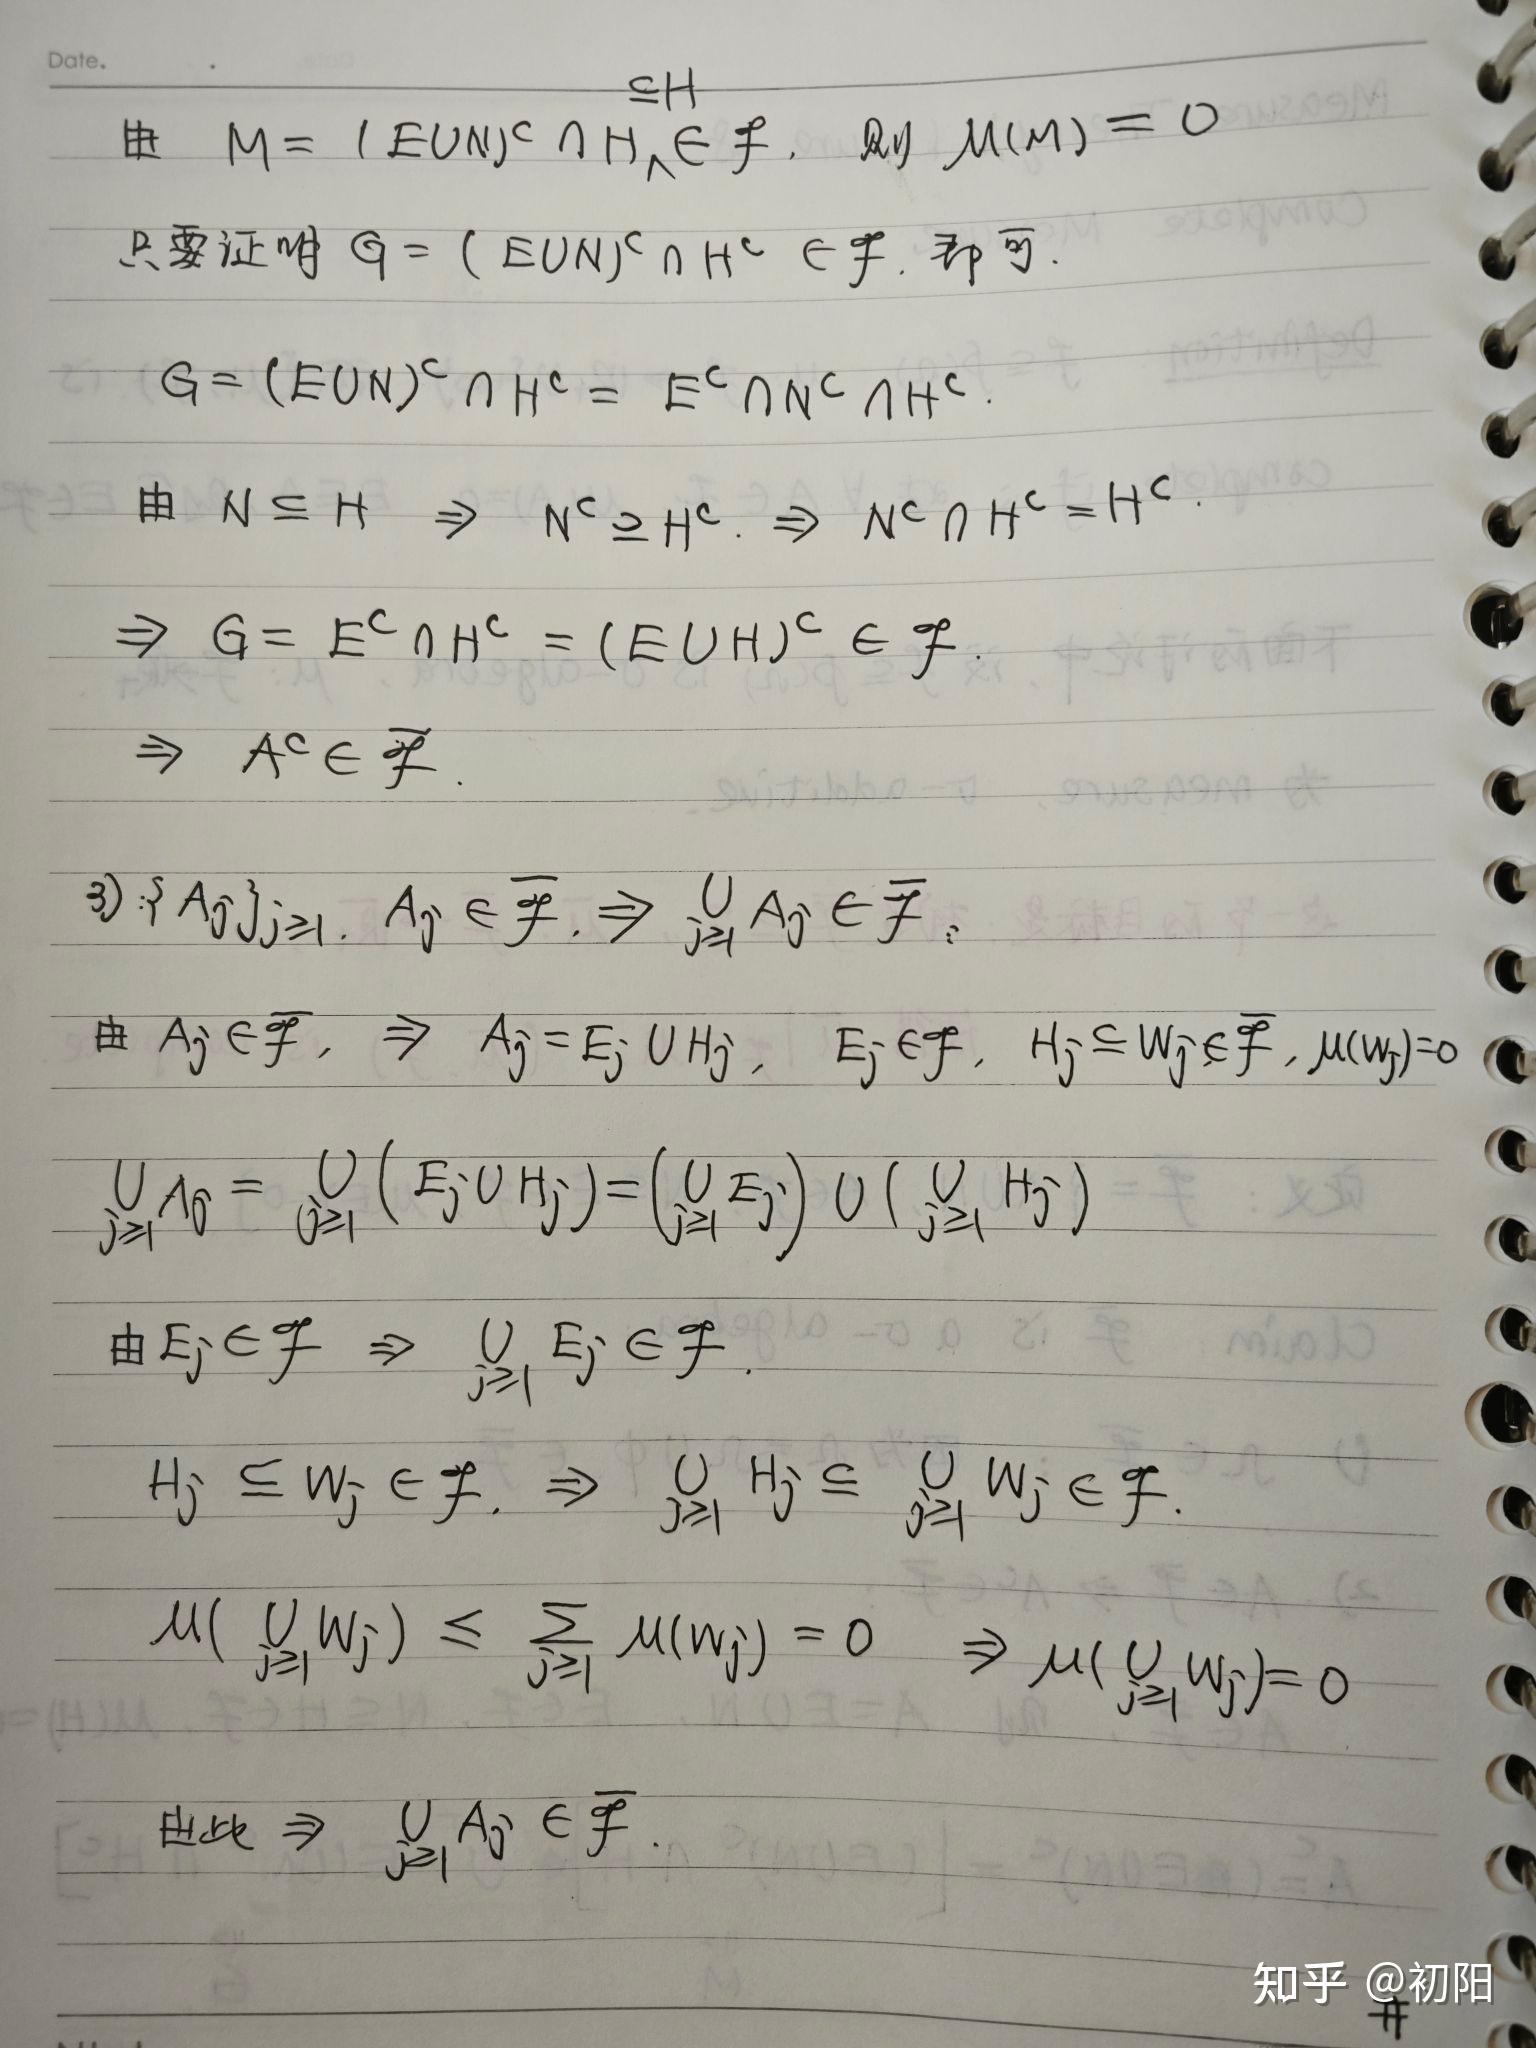 Date.
⊆H
由 M = (E∪N)ᶜ ∩ H ∧ ∈ ℱ. 则 μ(M) = 0
只要证明 G = (E∪N)ᶜ ∩ Hᶜ ∈ ℱ. 即可.
G = (E∪N)ᶜ ∩ Hᶜ = Eᶜ ∩ Nᶜ ∩ Hᶜ.
由 N ⊆ H ⇒ Nᶜ ⊇ Hᶜ. ⇒ Nᶜ ∩ Hᶜ = Hᶜ.
⇒ G = Eᶜ ∩ Hᶜ = (E∪H)ᶜ ∈ ℱ.
⇒ Aᶜ ∈ ℱ̅.
3) : {Aj}j≥1. Aj ∈ ℱ̅. ⇒ ∪j≥1 Aj ∈ ℱ̅ :
由 Aj ∈ ℱ̅, ⇒ Aj = Ej ∪ Hj, Ej ∈ ℱ, Hj ⊆ Wj ∈ ℱ̅, μ(Wj)=0
∪j≥1 Aj = ∪j≥1 (Ej ∪ Hj) = (∪j≥1 Ej) ∪ (∪j≥1 Hj)
由 Ej ∈ ℱ ⇒ ∪j≥1 Ej ∈ ℱ.
Hj ⊆ Wj ∈ ℱ. ⇒ ∪j≥1 Hj ⊆ ∪j≥1 Wj ∈ ℱ.
μ(∪j≥1 Wj) ≤ ∑j≥1 μ(Wj) = 0 ⇒ μ(∪j≥1 Wj) = 0
由此 ⇒ ∪j≥1 Aj ∈ ℱ̅.
知乎 @初阳
#